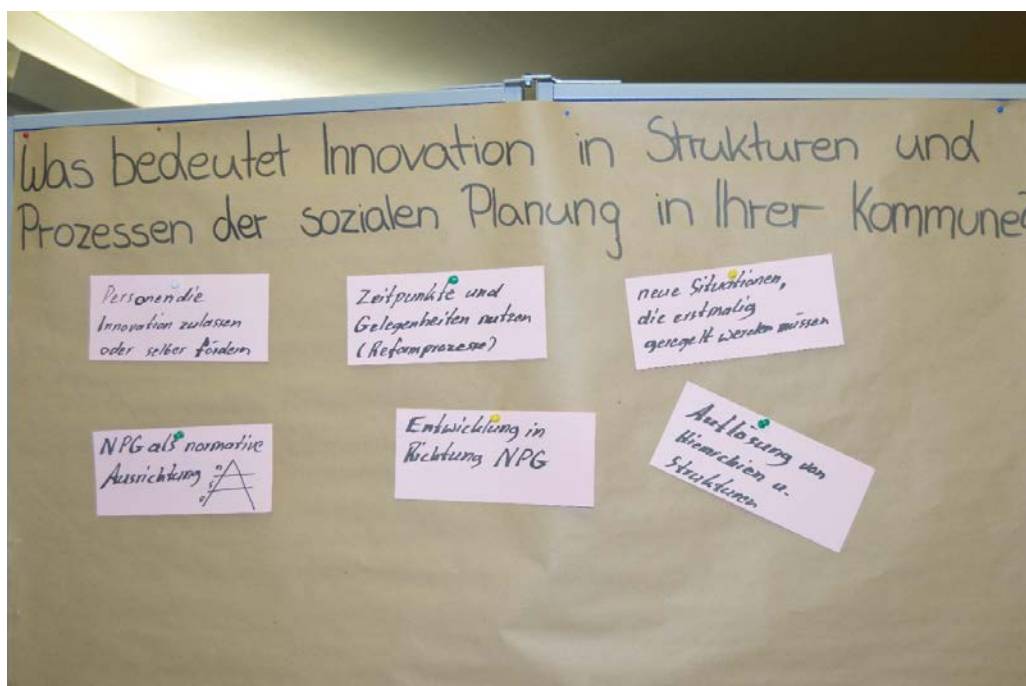 Was bedeutet Innovation in Strukturen und
Prozessen der sozialen Planung in Ihrer Kommune?
Personen die
Innovation zulassen
oder selber fördern
Zeitpunkte und
Gelegenheiten nutzen
(Reformprozesse)
neue Situationen,
die erstmalig
geregelt werden müssen
NPG als normative
Ausrichtung
Entwicklung in
Richtung NPG
Auflösung von
Hierarchien u.
Strukturen